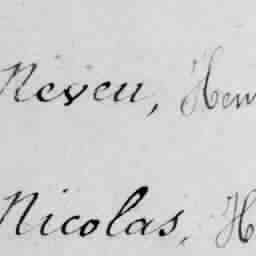 Neveu, Hen
Nicolas, H